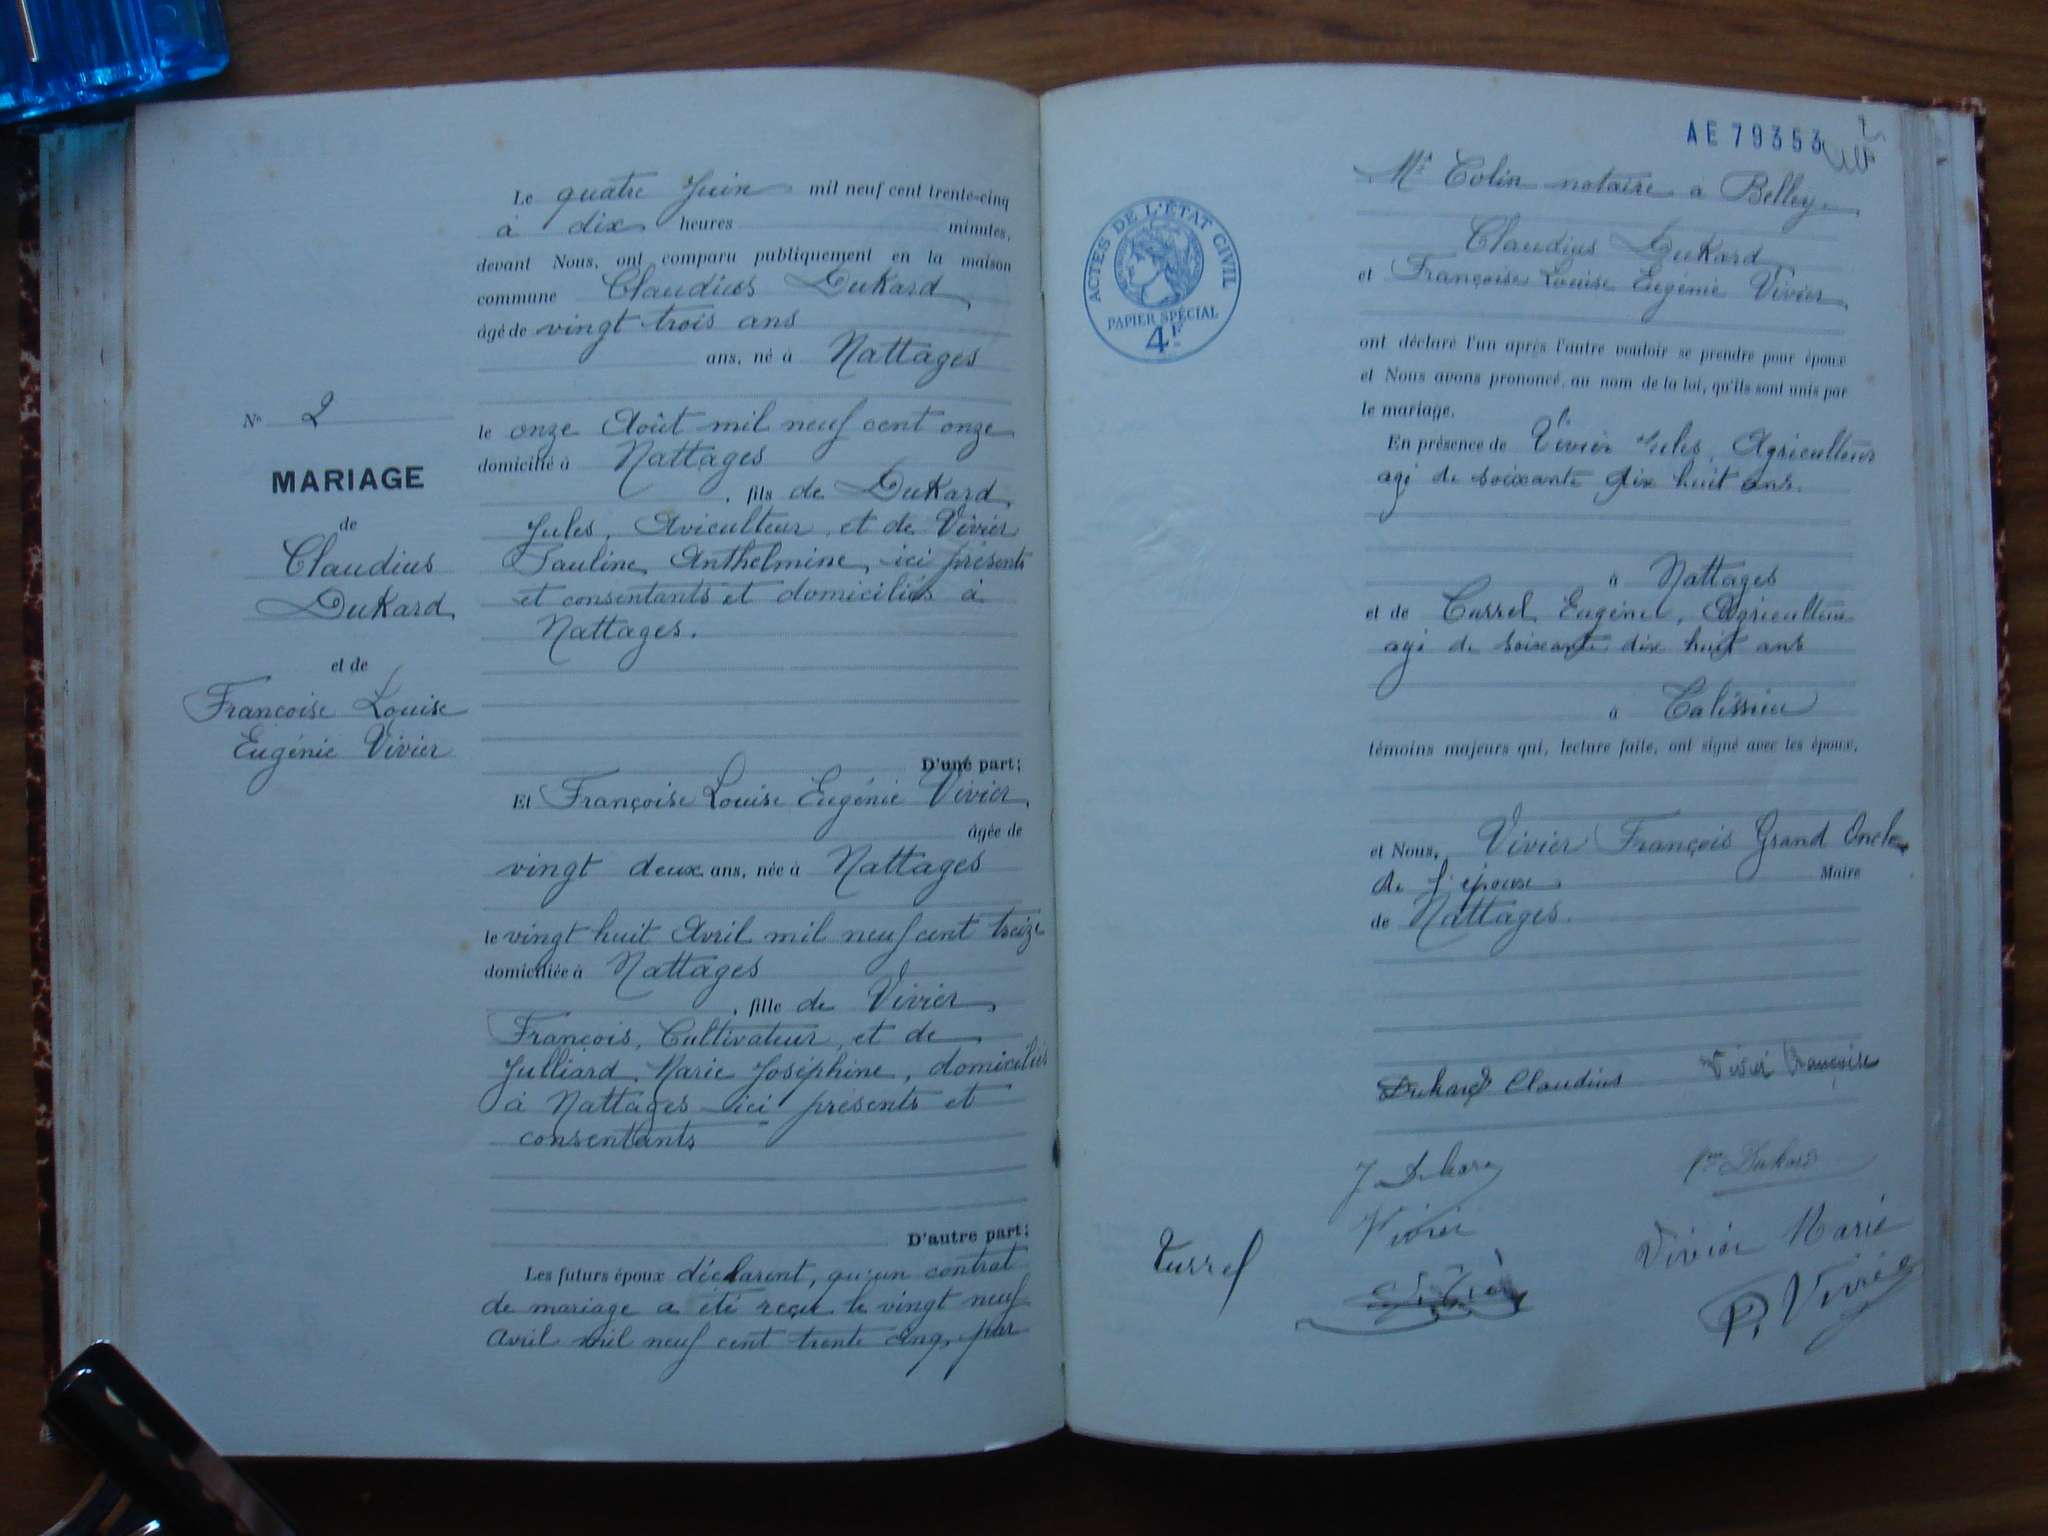 Le quatre Juin mil neuf cent trente-cinq
à dix heures minutes,
devant Nous, ont comparu publiquement en la maison
commune Claudius Dukard
âgé de vingt trois ans
ans, né à Nattages
le onze Août mil neuf cent onze
domicilié à Nattages
, fils de Dukard
Jules, Aviculteur, et de Vivier
Pauline, Anthelmine, ici présents
et consentants et domiciliés à
Nattages.
N° 2
MARIAGE
de
Claudius
Dukard
et de
Françoise Louise
Eugénie Vivier
D'une part;
Et Françoise Louise Eugénie Vivier
âgée de
vingt deux ans, née à Nattages
le vingt huit Avril mil neuf cent treize
domiciliée à Nattages
, fille de Vivier
François, Cultivateur, et de
Julliard, Marie Joséphine, domiciliés
à Nattages ici présents et
consentants
D'autre part;
Les futurs époux déclarent, qu'un contrat
de mariage a été reçu le vingt neuf
Avril mil neuf cent trente cinq, par
AE 79353
Mr Colin notaire à Belley
ACTES DE L'ÉTAT CIVIL
PAPIER SPÉCIAL
4F
Claudius Dukard
et Françoise Louise Eugénie Vivier
ont déclaré l'un après l'autre vouloir se prendre pour époux
et Nous avons prononcé, au nom de la loi, qu'ils sont unis par
le mariage.
En présence de Vivier Jules, Agriculteur
agé de soixante dix huit ans.
à Nattages
et de Turrel Eugène, Agriculteur
agé de soixante dix huit ans
à Talissieu
témoins majeurs qui, lecture faite, ont signé avec les époux,
et Nous, Vivier François Grand Oncle
de l'épouse Maire
de Nattages.
Dukard Claudius Vivier Françoise
J Dukard Dukard
Vivier Vivier Marie
Turrel
P. Vivier